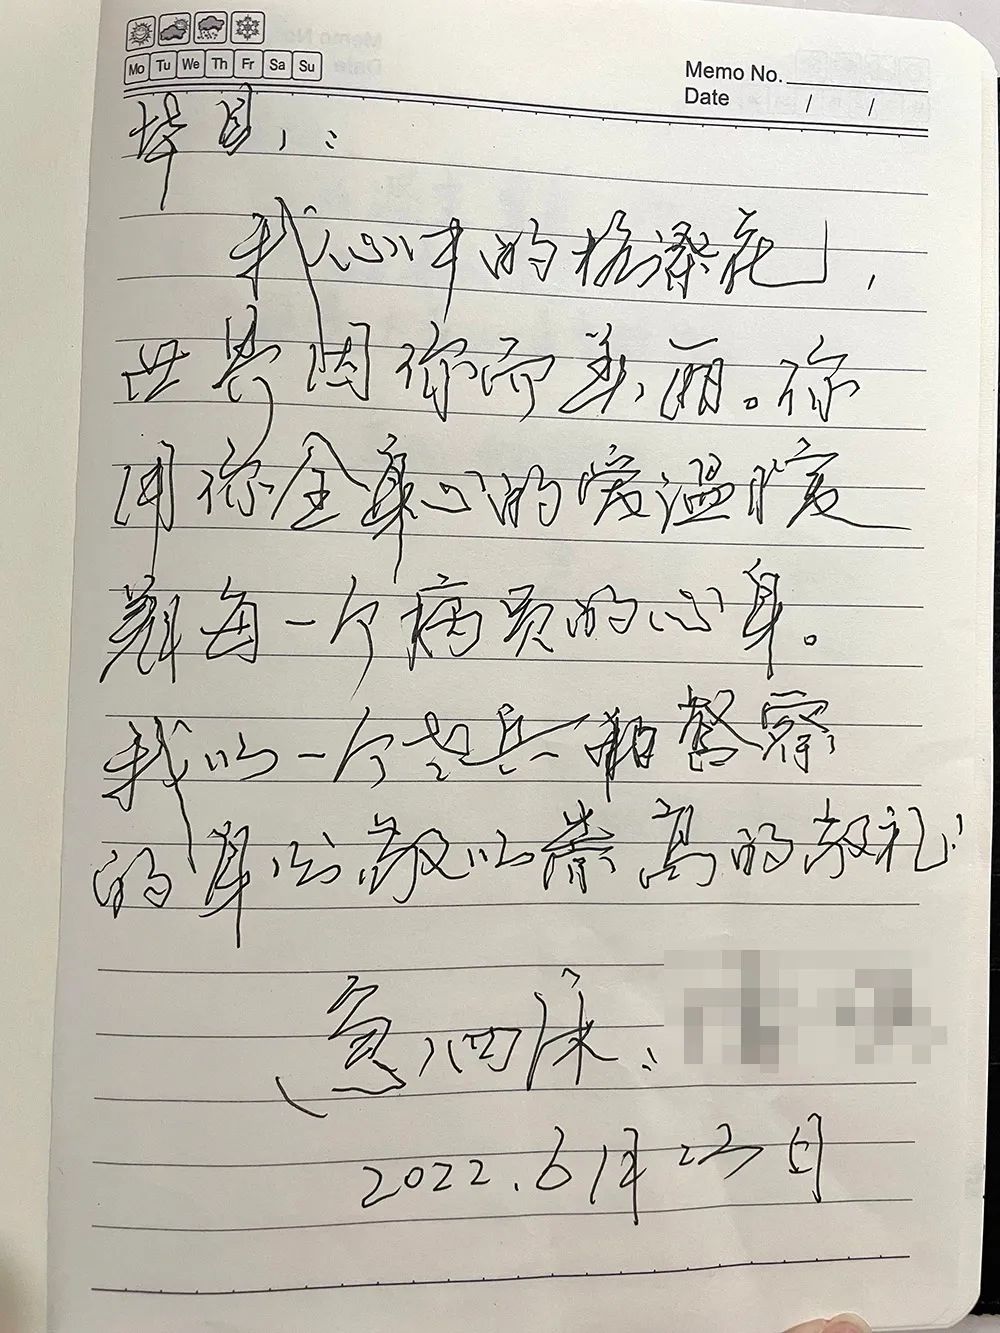 Mo Tu We Th Fr Sa Su
Memo No.
Date / /
我心中的格桑花，
世界因你而美丽。你
用你全身心的爱温暖
着每一个病员的心身。
我以一个老兵和警察
的身份敬以崇高的敬礼！
急诊四床：
2022.6月23日